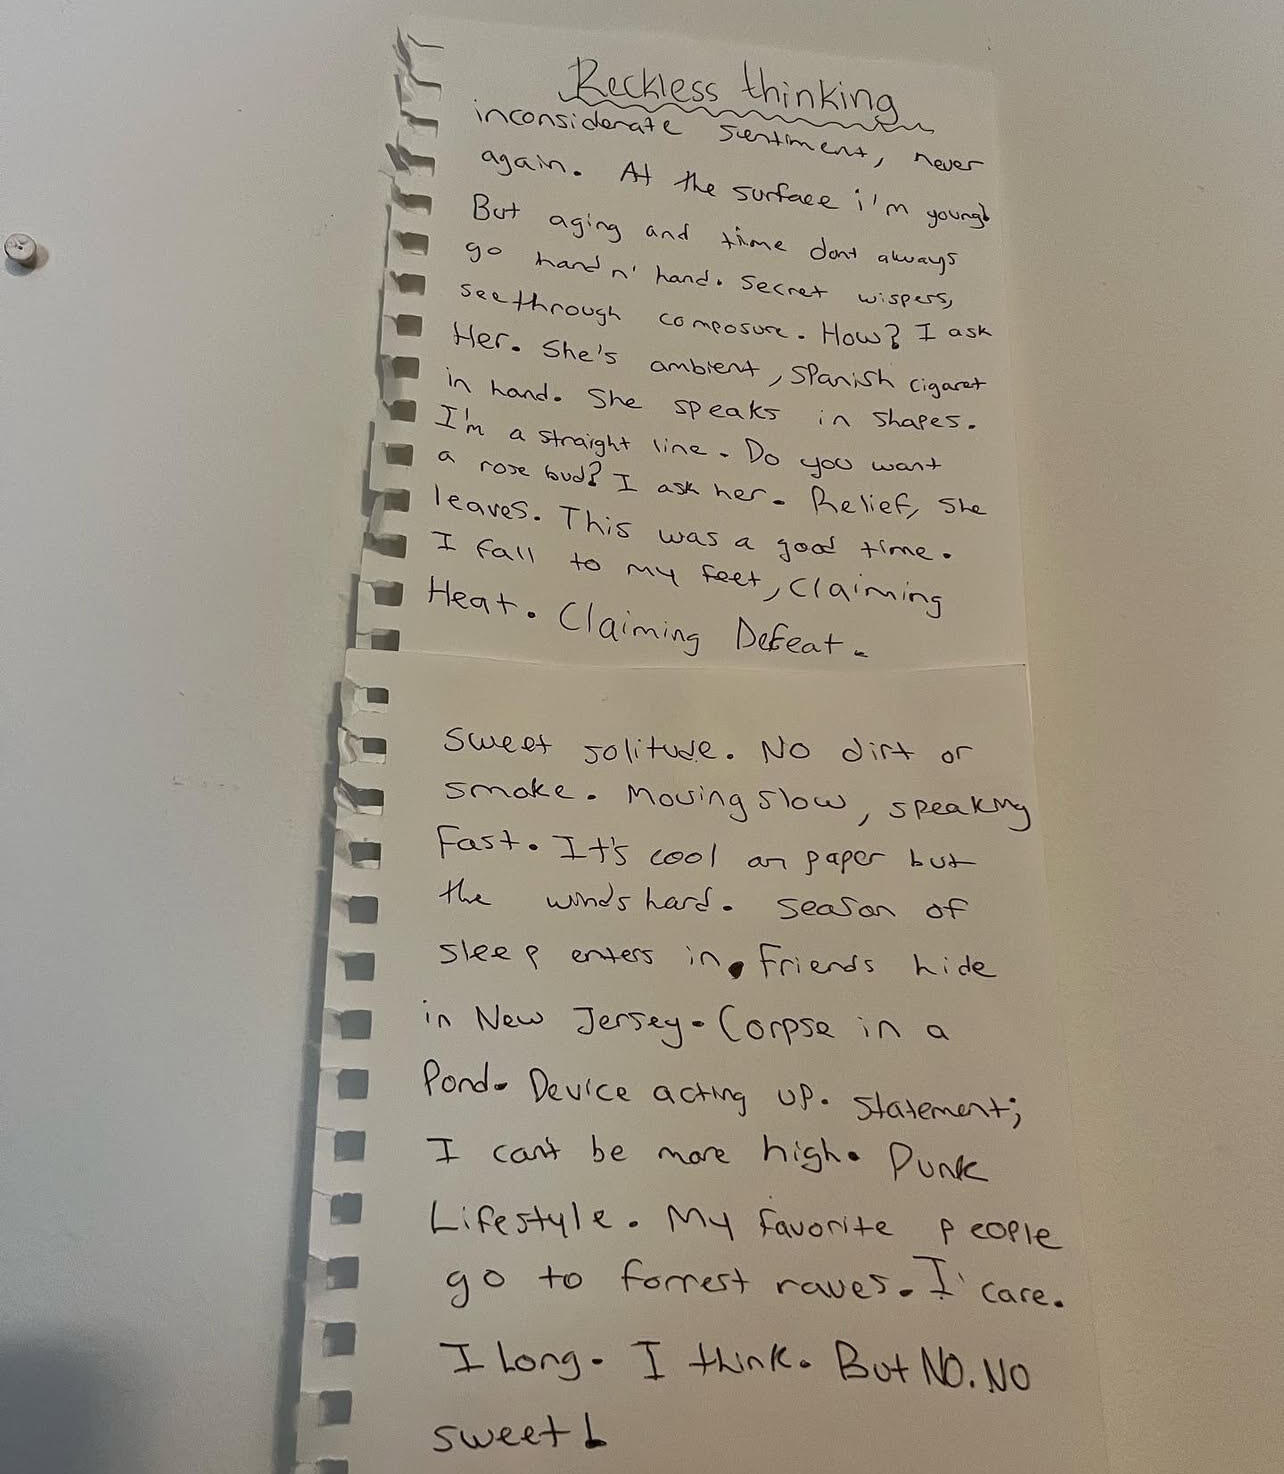 Reckless thinking
inconsiderate sentiment, never
again. At the surface i'm young!
But aging and time dont always
go hand n' hand. Secret wispers,
seethrough composure. How? I ask
Her. She's ambient, Spanish cigaret
in hand. She speaks in shapes.
I'm a straight line. Do you want
a rose bud? I ask her. Relief, she
leaves. This was a good time.
I fall to my feet, Claiming
Heat. Claiming Defeat.
Sweet solitude. No dirt or
smoke. Moving slow, speaking
Fast. It's cool on paper but
the winds hard. Season of
sleep enters in. Friends hide
in New Jersey. Corpse in a
Pond. Device acting up. Statement;
I can't be more high. Punk
Lifestyle. My favorite people
go to forrest raves. I care.
I Long. I think. But NO. NO
sweet!